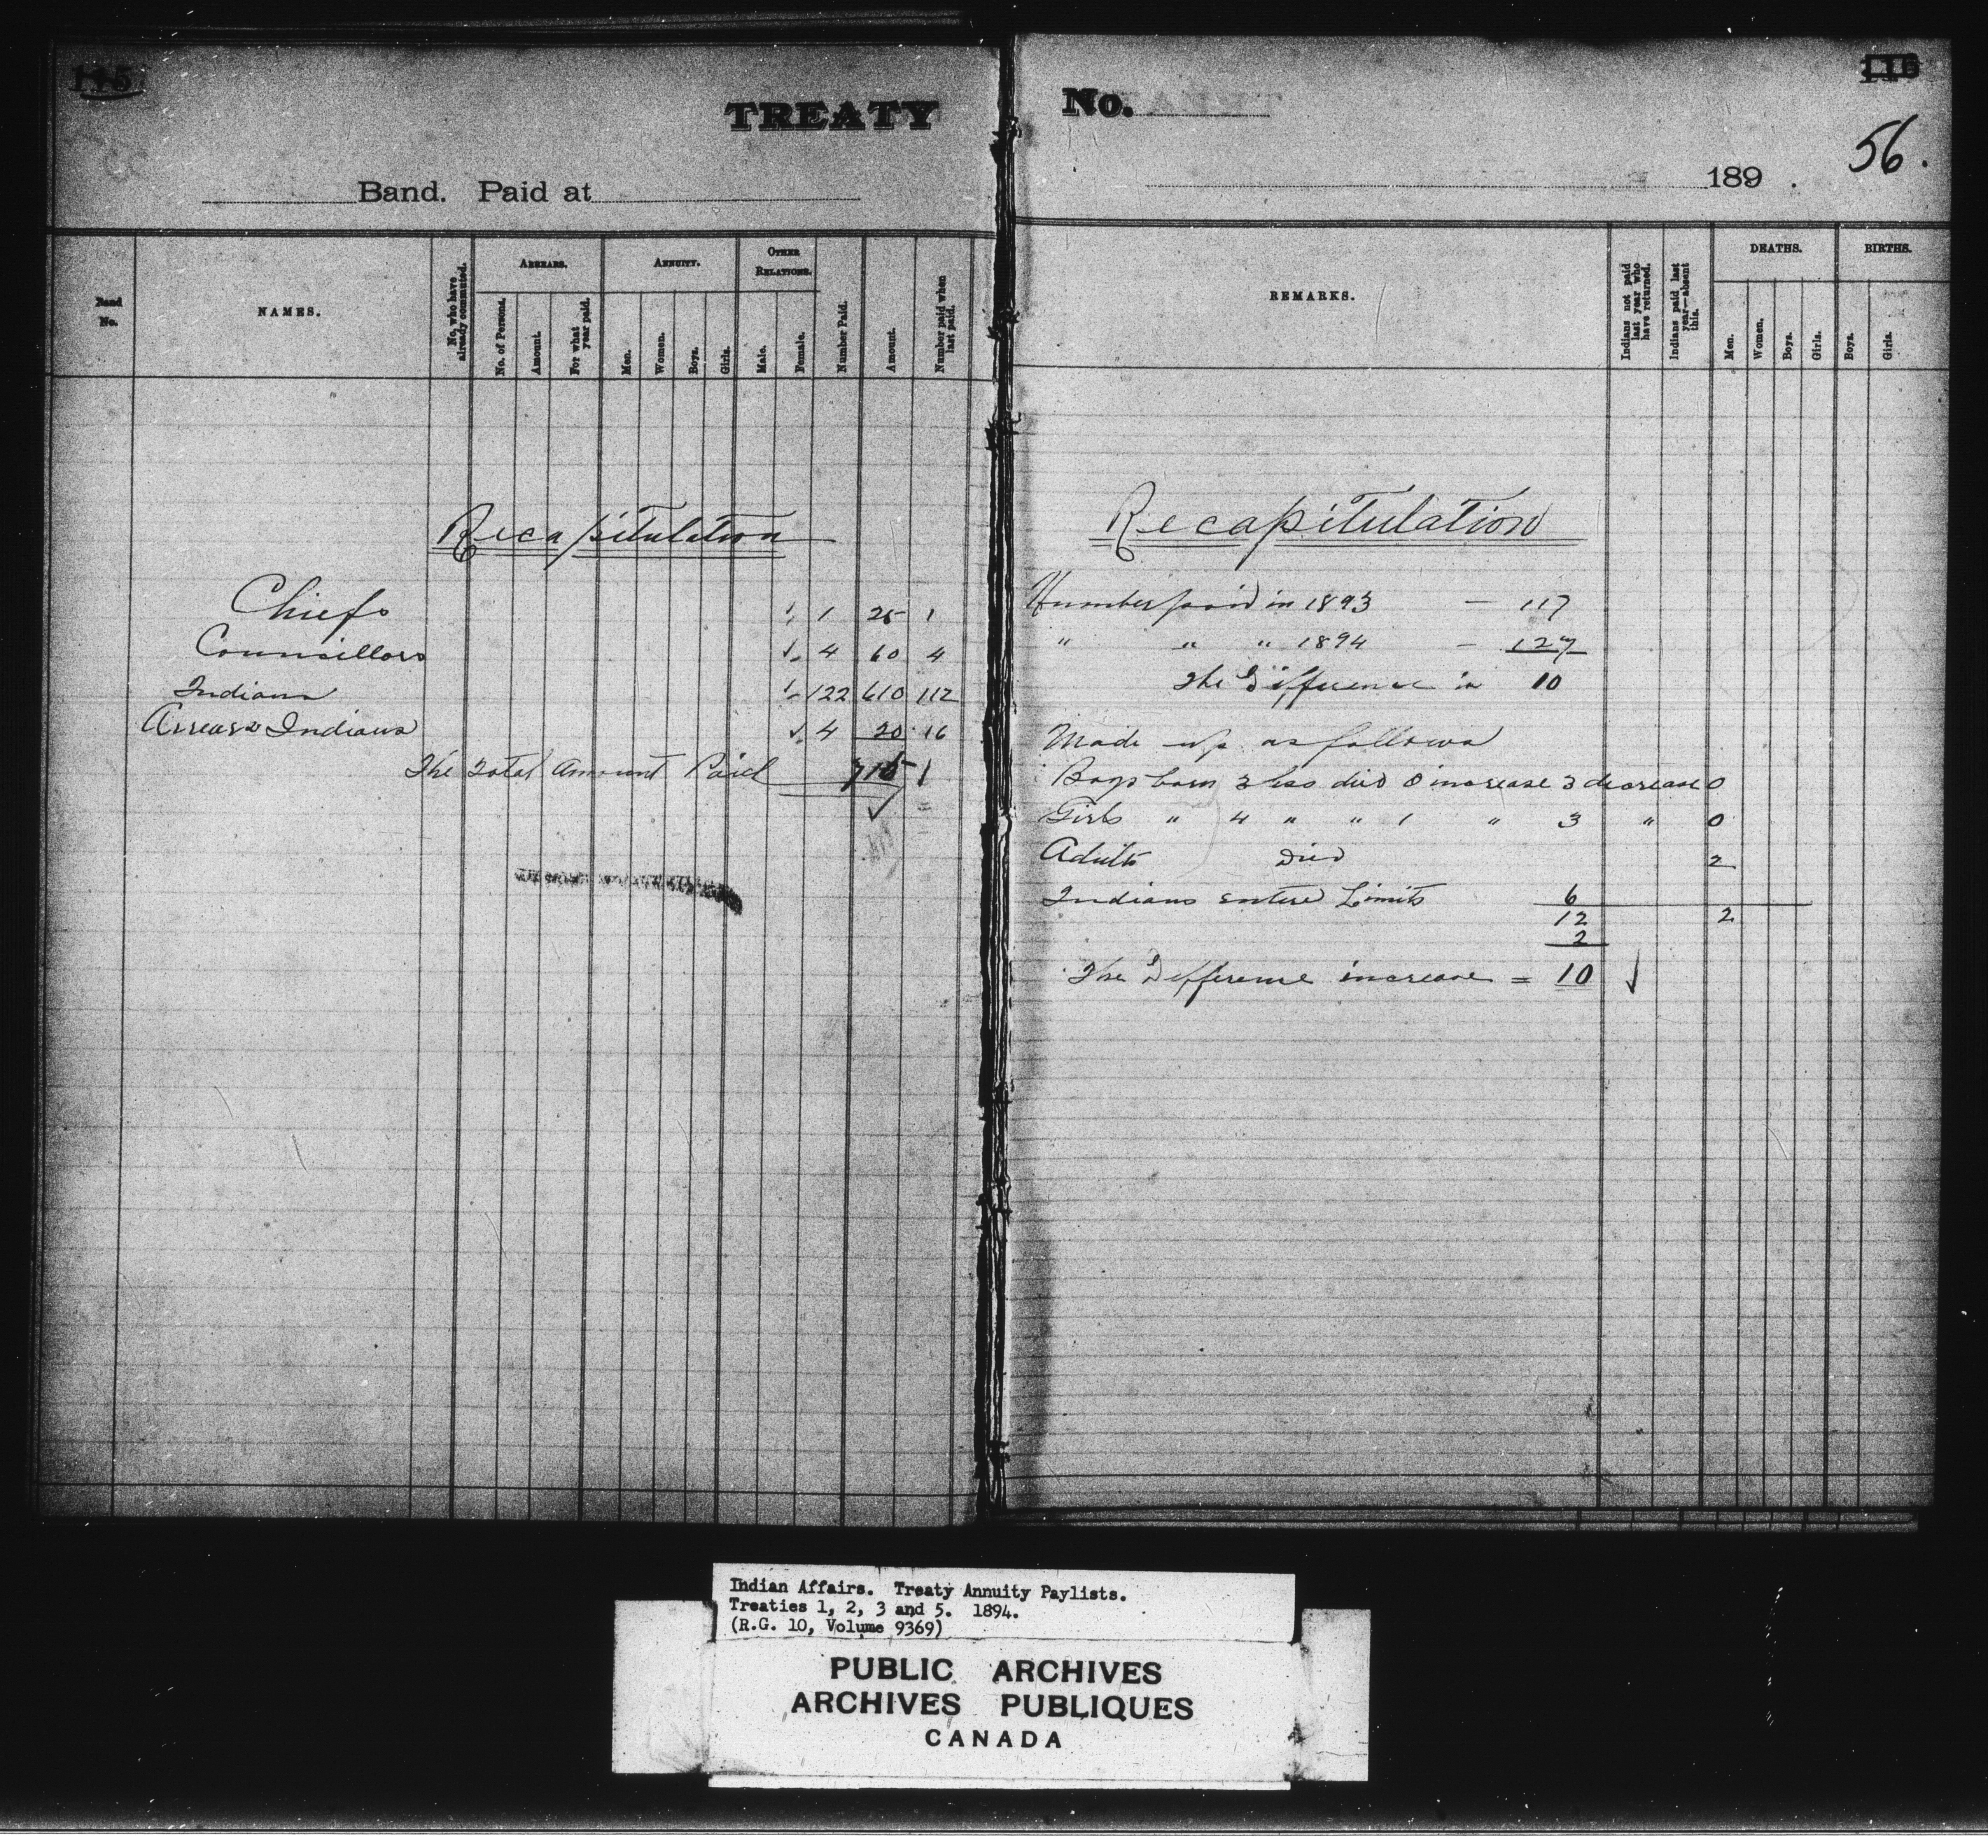 115
TREATY
Band. Paid at
Band No.
NAMES.
No. who have already commuted.
ARREARS.
No. of Persons.
Amount.
For what year paid.
ANNUITY.
Men.
Women.
Boys.
Girls.
OTHER RELATIONS.
Male.
Female.
Number Paid.
Amount.
Number paid when last paid.
Recapitulation
Chiefs 1 25 1
Councillors 4 60 4
Indians 122 610 112
Arrears Indians 4 20 16
The Total Amount Paid 715 1
116
No.
56.
189 .
REMARKS.
Indians not paid last year who have returned.
Indians paid last year—absent this.
DEATHS.
Men.
Women.
Boys.
Girls.
BIRTHS.
Boys.
Girls.
Recapitulation
Number paid in 1893 — 117
" " " 1894 — 127
The Difference is 10
Made up as follows
Boys born 3 less died 0 increase 3 decrease 0
Girls " 4 " " 1 " 3 " 0
Adults Died 2
Indians entered Limits 6
12 2
2
The Difference increase = 10
Indian Affairs. Treaty Annuity Paylists.
Treaties 1, 2, 3 and 5. 1894.
(R.G. 10, Volume 9369)
PUBLIC ARCHIVES
ARCHIVES PUBLIQUES
CANADA